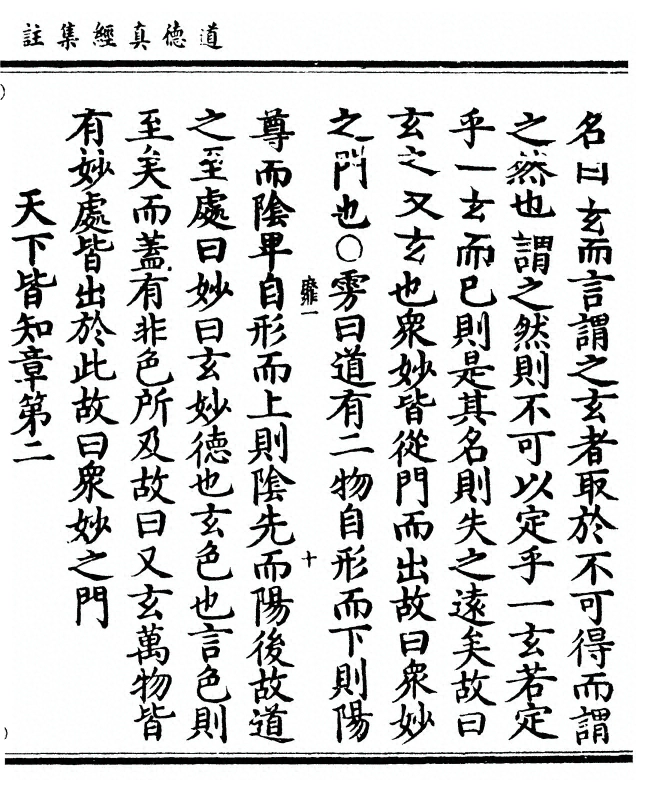 道德真經集註
名曰玄而言謂之玄者取於不可得而謂
之然也謂之然則不可以定乎一玄若定
乎一玄而已則是其名則失之遠矣故曰
玄之又玄也衆妙皆從門而出故曰衆妙
之門也○雱曰道有二物自形而下則陽
靡一
十
尊而陰卑自形而上則陰先而陽後故道
之至處曰妙曰玄妙德也玄色也言色則
至矣而蓋有非色所及故曰又玄萬物皆
有妙處皆出於此故曰衆妙之門
天下皆知章第二